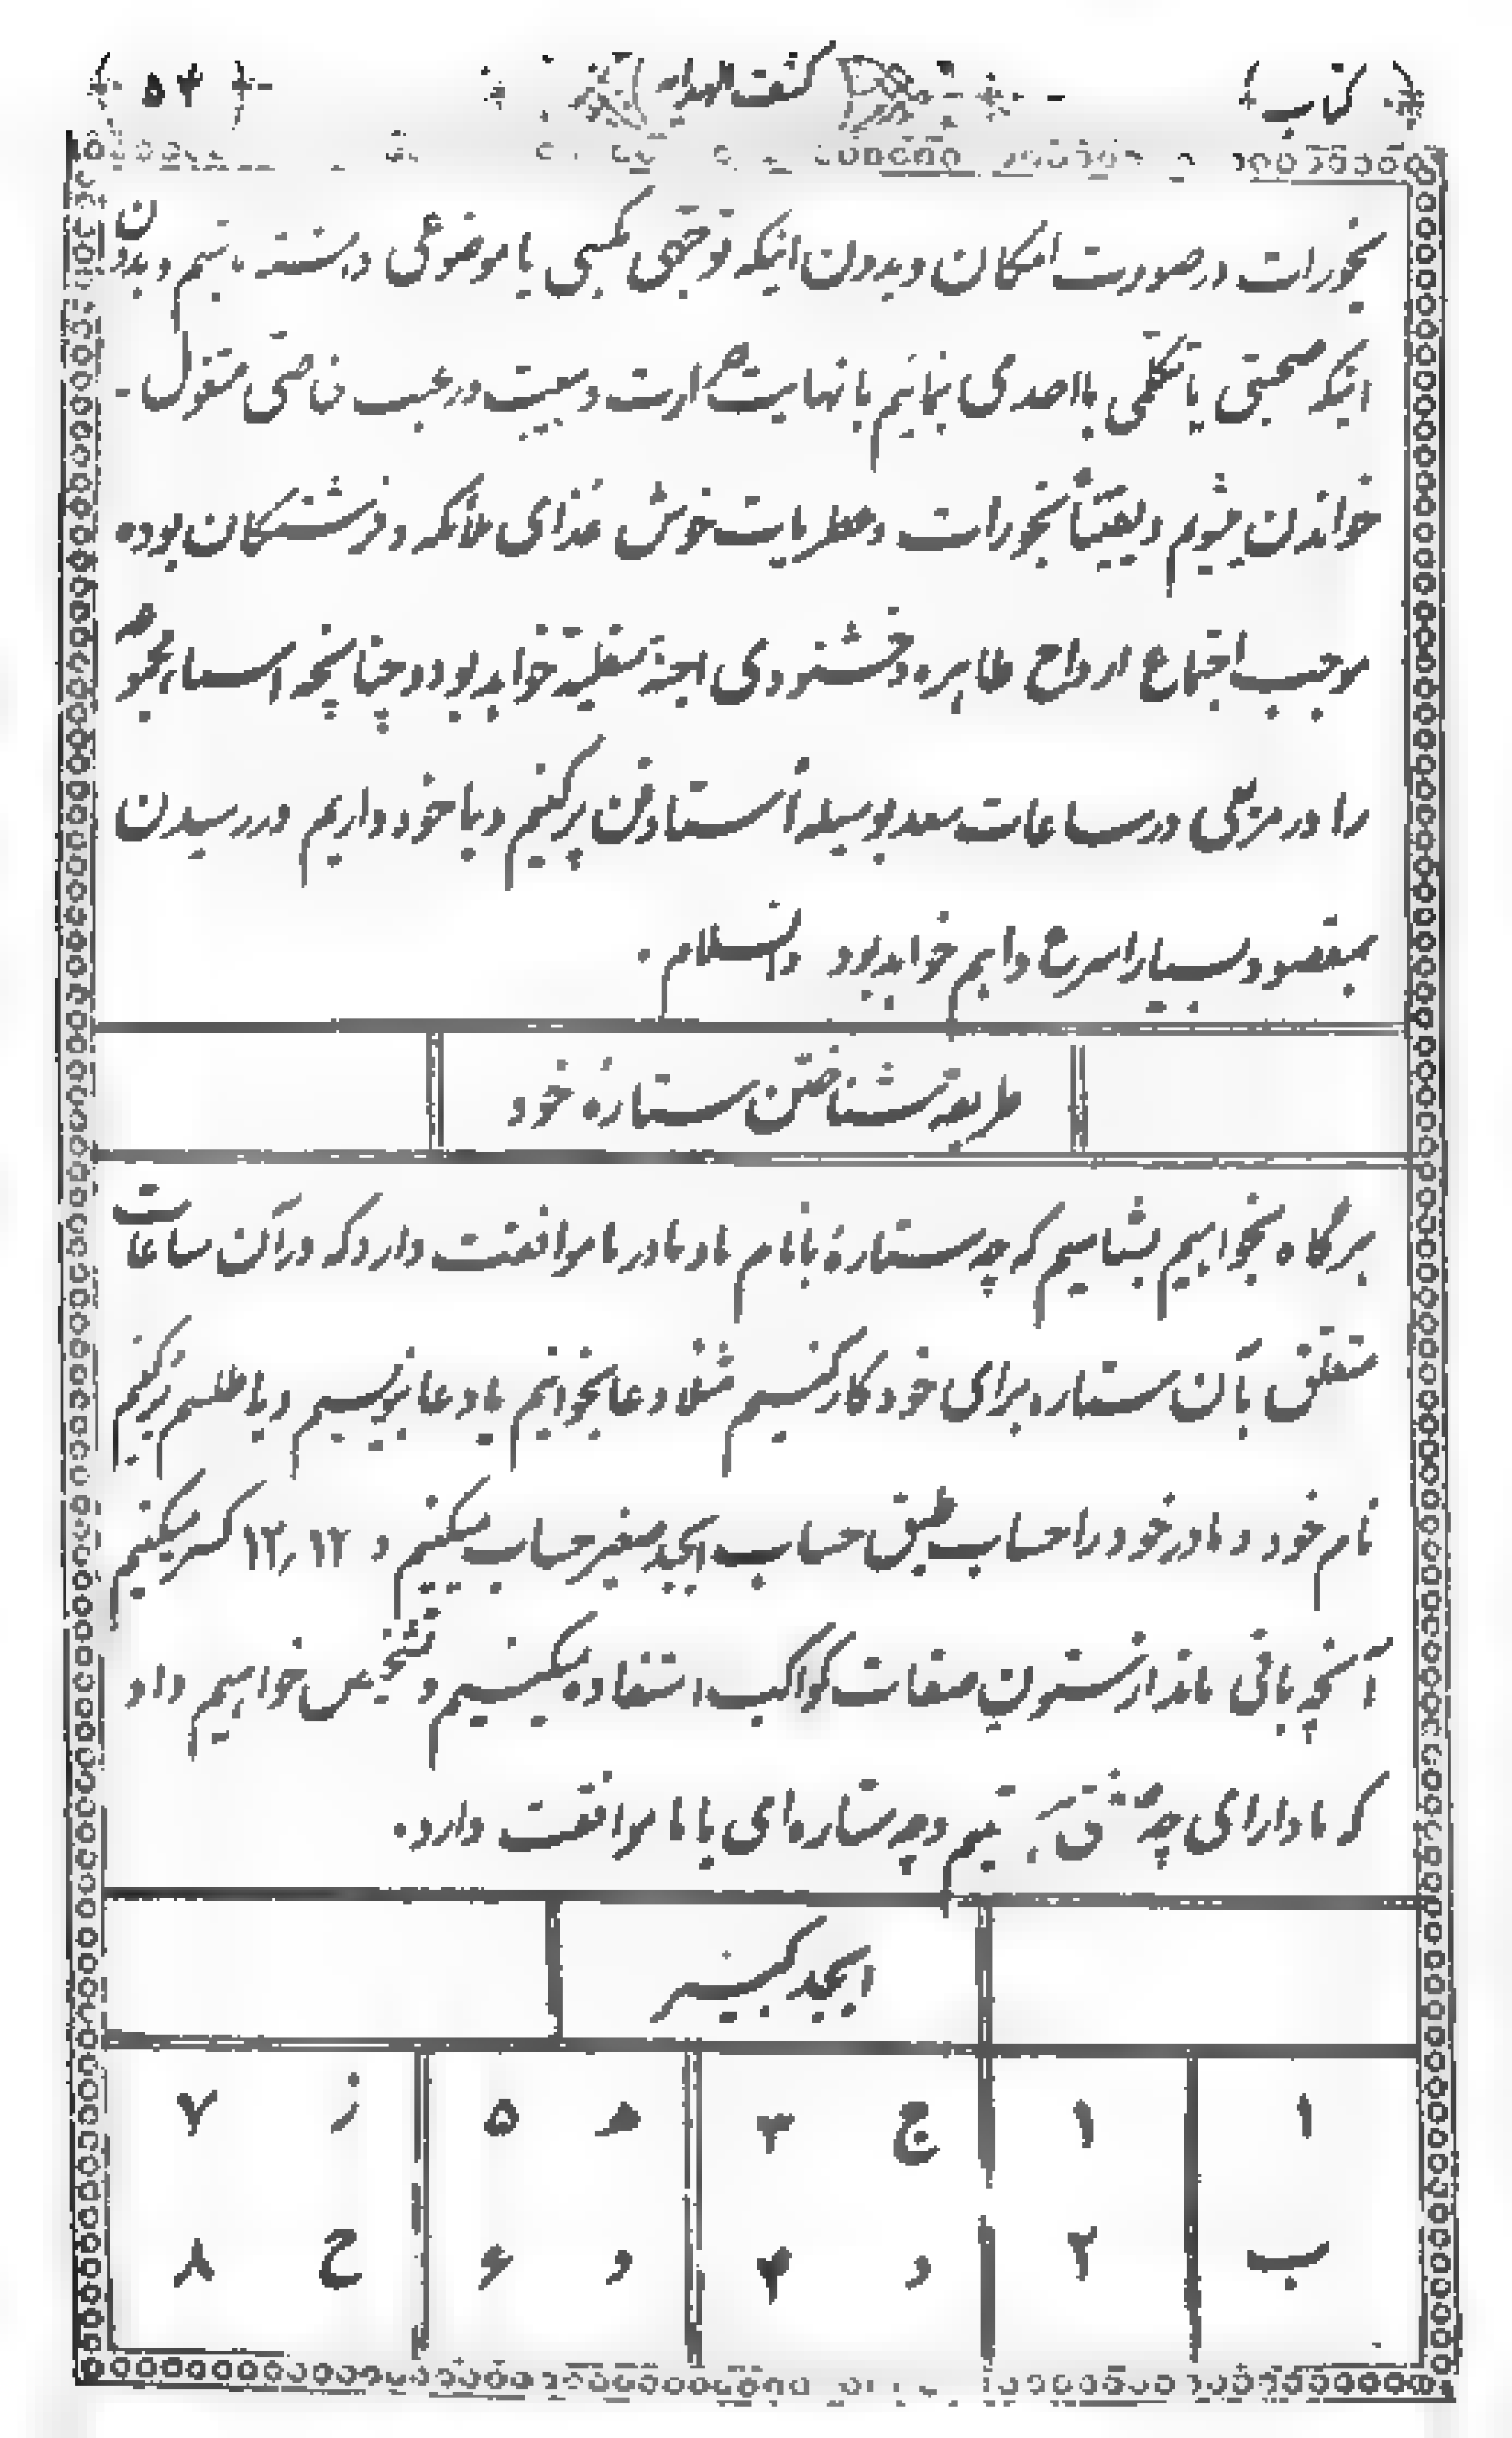 کتاب کشف الهدایه ۵۴
بخورات درصورت امکان وبدون اینکه توجهی بکسی یا موضوعی داشته باشیم وبدون
اینکه صحبتی یا تکلمی بااحدی بنمائیم با نهایت حرارت و درغیب خاصی مشغول
خواندن میشویم ویقیناً بخورات وعطریات خوش غذای ملائکه وفرشتگان بوده
موجب اجتماع ارواح طاهره وخشنودی اجنهٔ سفلیه خواهد بود وچنانچه اسماء
را در مربعی درساعات سعد بوسیله استاد فن پرکنیم وبا خود داریم دررسیدن
بمقصود بسیار اسرع واهم خواهد بود والسلام .
طریقه شناختن ستارهٔ خود
هرگاه بخواهیم بشناسیم که چه ستارهٔ بانام ما ومادر ما موافقت دارد که درآن ساعات
متعلق بآن ستاره برای خود کار کنیم مثلا دعا بخوانیم یا دعا بنویسیم ویا طلسم پرکنیم
نام خود و مادر خود را حساب طبق حساب ابجد صغیر حساب میکنیم و ۱۲٫۱۲ کسر میکنیم
آنچه باقی ماند از ستون صفات کواکب استفاده میکنیم وتشخیص خواهیم داد
که ما دارای چه وچه ستاره‌ای با ما موافقت دارد.
ابجد کبیر
ا ۱ ج ۳ ه ۵ ز ۷
ب ۲ د ۴ و ۶ ح ۸